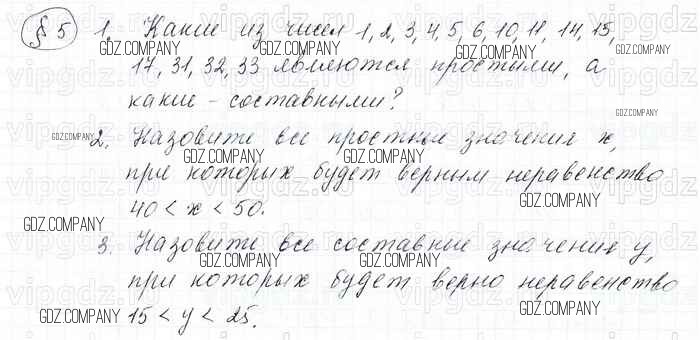 § 5 1. Какие из чисел 1, 2, 3, 4, 5, 6, 10, 11, 14, 15,
GDZ.COMPANY GDZ.COMPANY GDZ.COMPANY
17, 31, 32, 33 являются простыми, а
GDZ.COMPANY
какие - составными?
GDZ.COMPANY
GDZ.COMPANY
2. Назовите все простые значения x,
GDZ.COMPANY GDZ.COMPANY
при которых будет верным неравенство
GDZ.COMPANY
40 < x < 50.
GDZ.COMPANY
3. Назовите все составные значения y,
GDZ.COMPANY GDZ.COMPANY GDZ.COMPANY
при которых будет верно неравенство
GDZ.COMPANY GDZ.COMPANY
15 < y < 25.